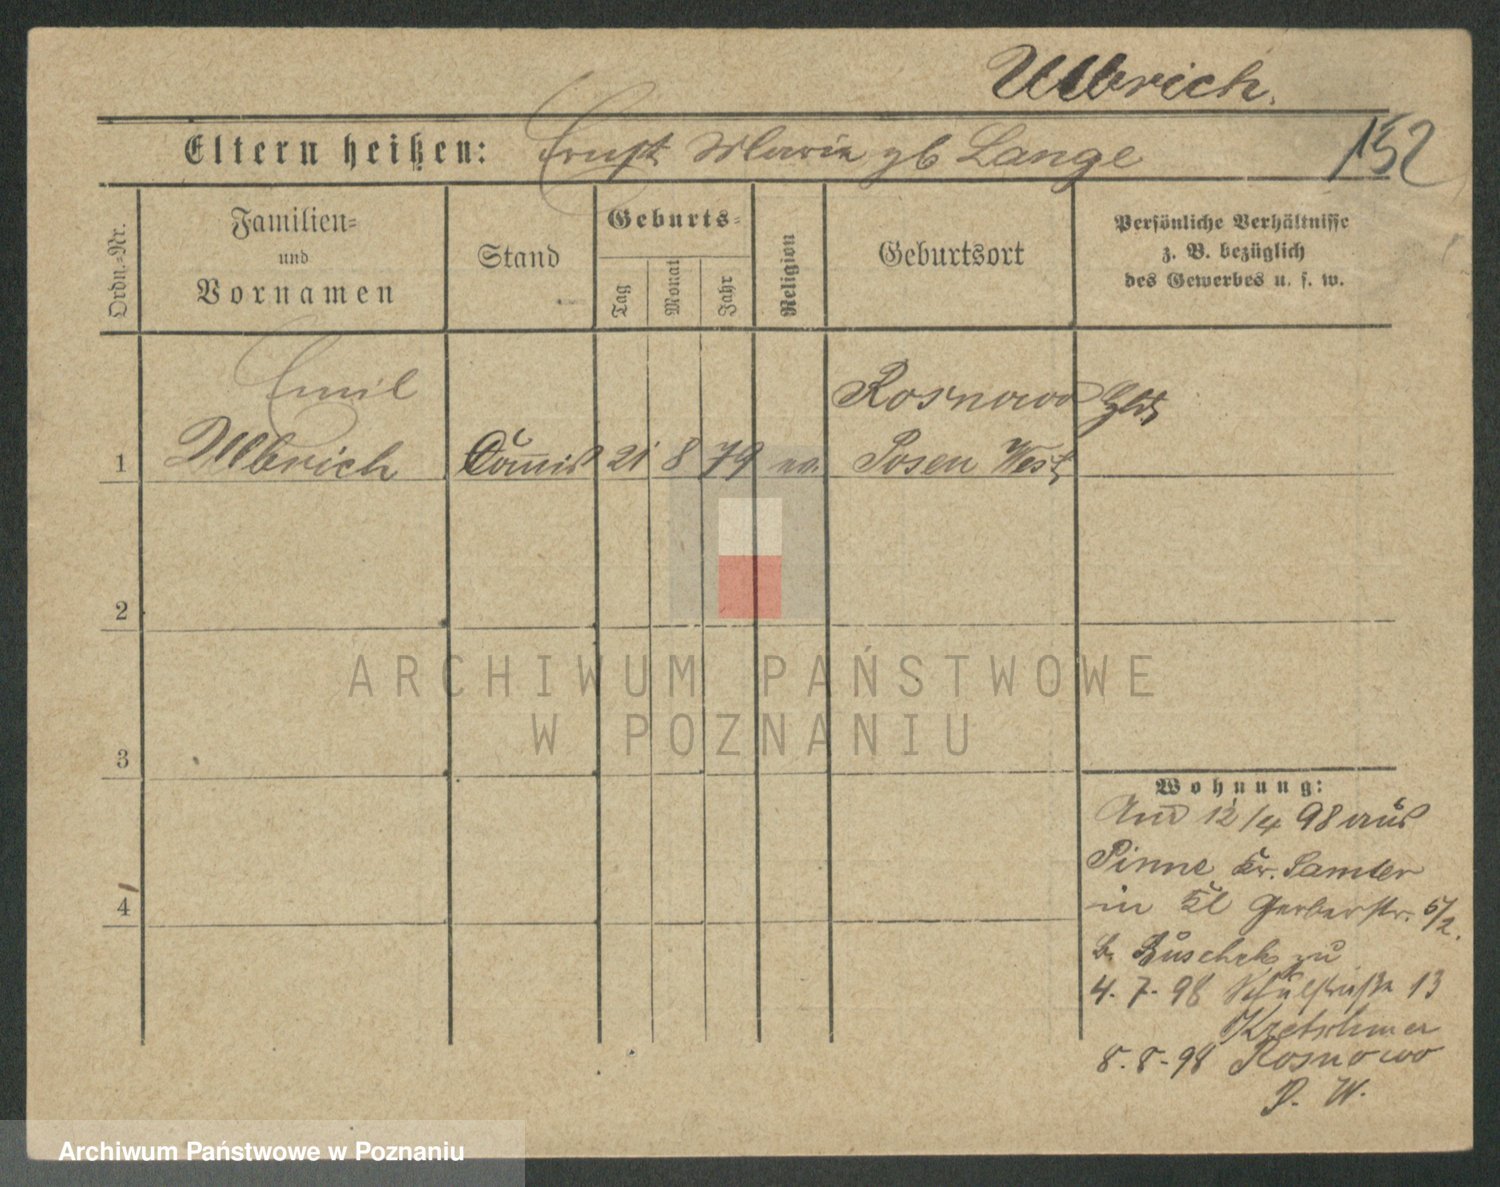 Ulbrich.
152
Eltern heißen: Ernst Maria gb Lange
Ordn.-Nr.
Familien-
und
Vornamen
Stand
Geburts-
Tag
Monat
Jahr
Religion
Geburtsort
Persönliche Verhältnisse
z. B. bezüglich
des Gewerbes u. s. w.
Emil
Rosnowo
1 Ulbrich Commis 21 8 79 ev. Posen West
2
3
4
Wohnung:
12/4 98 aus
Pinne Kr. Samter
in Kl Gerberstr. 5/2.
b. Buschek zu
4. 7. 98 Schulstraße 13
Kretschmer
8. 8. 98 Rosnowo
P. W.
ARCHIWUM PAŃSTWOWE
W POZNANIU
Archiwum Państwowe w Poznaniu